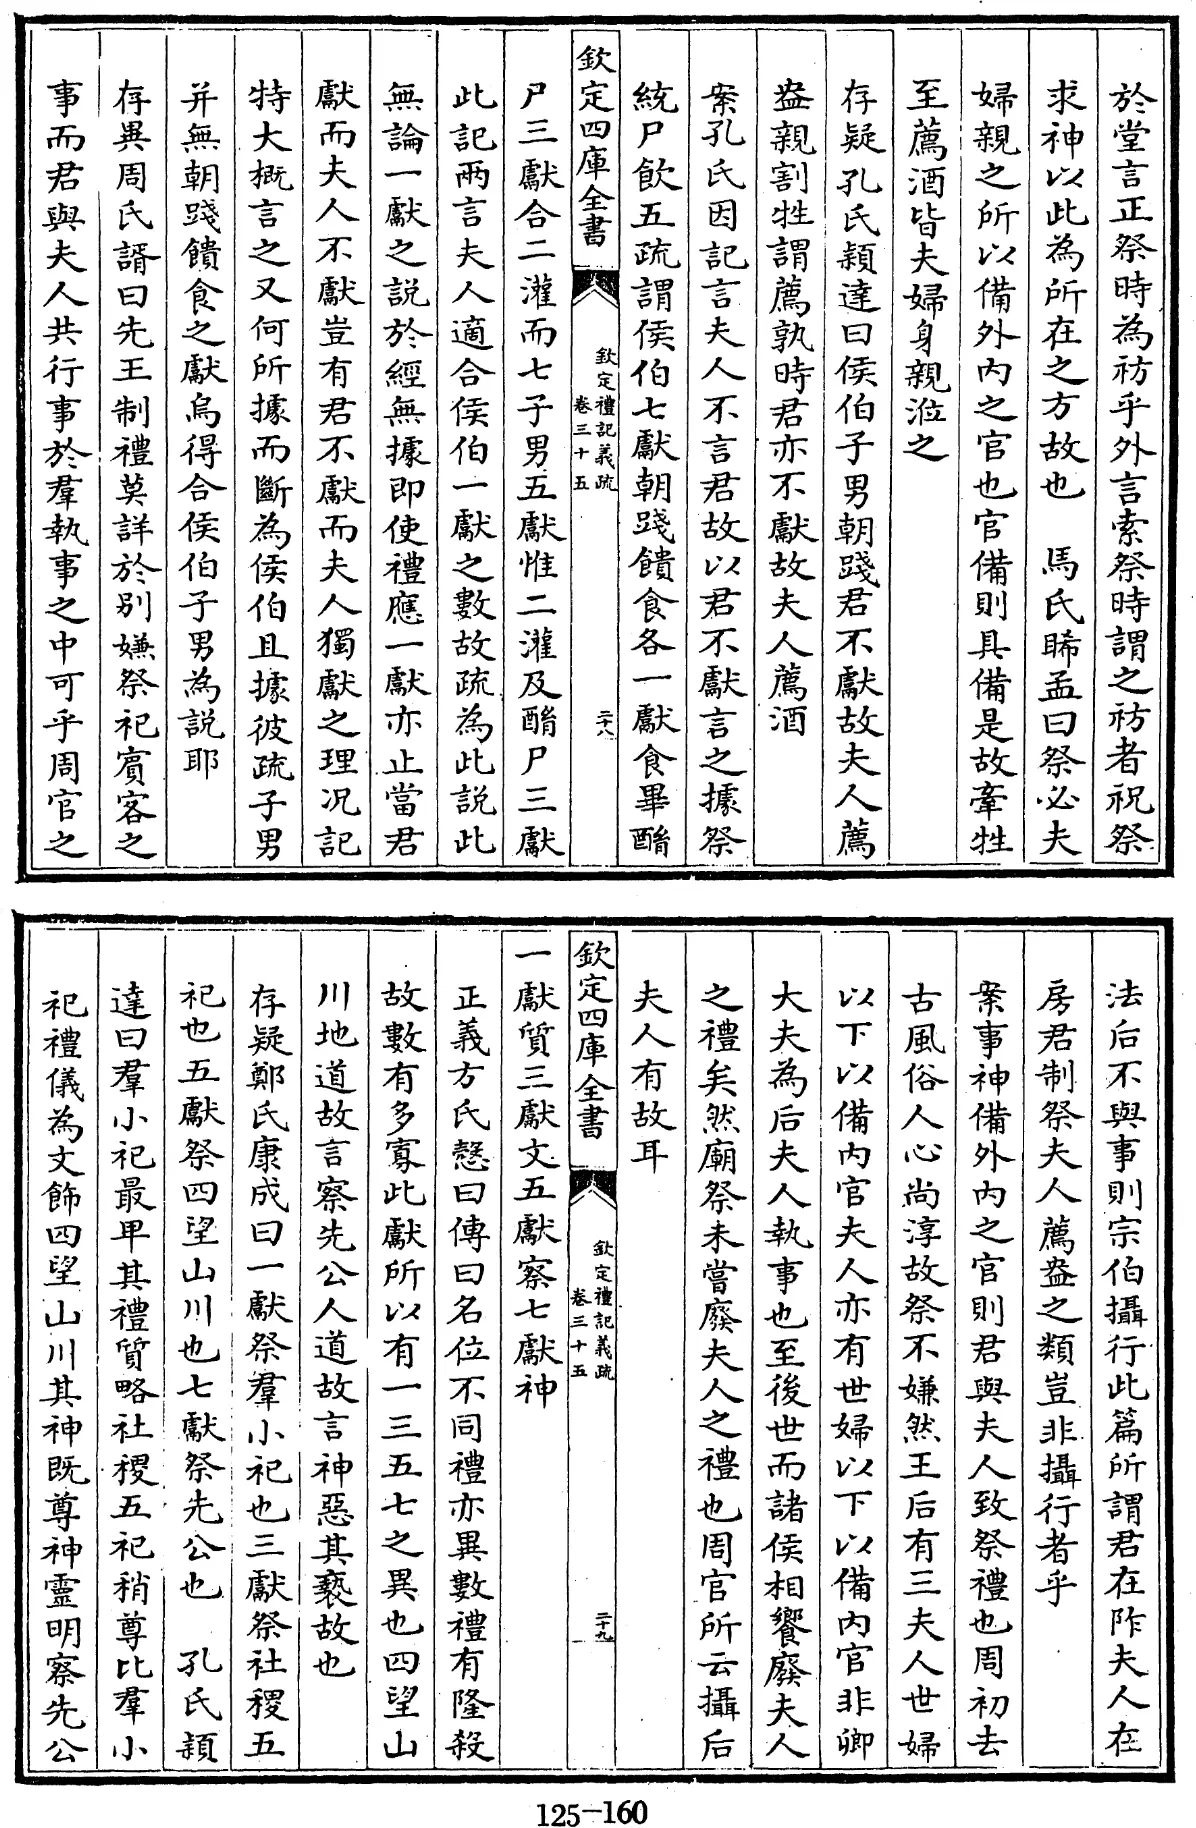 於堂言正祭時為祊乎外言索祭時謂之祊者祝祭
求神以此為所在之方故也　馬氏睎孟曰祭必夫
婦親之所以備外內之官也官備則具備是故牽牲
至薦酒皆夫婦身親涖之
存疑孔氏穎達曰侯伯子男朝踐君不獻故夫人薦
盎親割牲謂薦孰時君亦不獻故夫人薦酒
案孔氏因記言夫人不言君故以君不獻言之據祭
統尸飲五疏謂侯伯七獻朝踐饋食各一獻食畢酳
欽定四庫全書
欽定禮記義疏
卷三十五
二十八
尸三獻合二灌而七子男五獻惟二灌及酳尸三獻
此記兩言夫人適合侯伯一獻之數故疏為此説此
無論一獻之説於經無據即使禮應一獻亦止當君
獻而夫人不獻豈有君不獻而夫人獨獻之理況記
特大概言之又何所據而斷為侯伯且據彼疏子男
并無朝踐饋食之獻烏得合侯伯子男為説耶
存異周氏諝曰先王制禮莫詳於別嫌祭祀賓客之
事而君與夫人共行事於羣執事之中可乎周官之
法后不與事則宗伯攝行此篇所謂君在阼夫人在
房君制祭夫人薦盎之類豈非攝行者乎
案事神備外內之官則君與夫人致祭禮也周初去
古風俗人心尚淳故祭不嫌然王后有三夫人世婦
以下以備內官夫人亦有世婦以下以備內官非卿
大夫為后夫人執事也至後世而諸侯相饗廢夫人
之禮矣然廟祭未嘗廢夫人之禮也周官所云攝后
夫人有故耳
欽定四庫全書
欽定禮記義疏
卷三十五
二十九
一獻質三獻文五獻察七獻神
正義方氏慤曰傳曰名位不同禮亦異數禮有隆殺
故數有多寡此獻所以有一三五七之異也四望山
川地道故言察先公人道故言神惡其褻故也
存疑鄭氏康成曰一獻祭羣小祀也三獻祭社稷五
祀也五獻祭四望山川也七獻祭先公也　孔氏穎
達曰羣小祀最卑其禮質略社稷五祀稍尊比羣小
祀禮儀為文飾四望山川其神既尊神靈明察先公
125-160